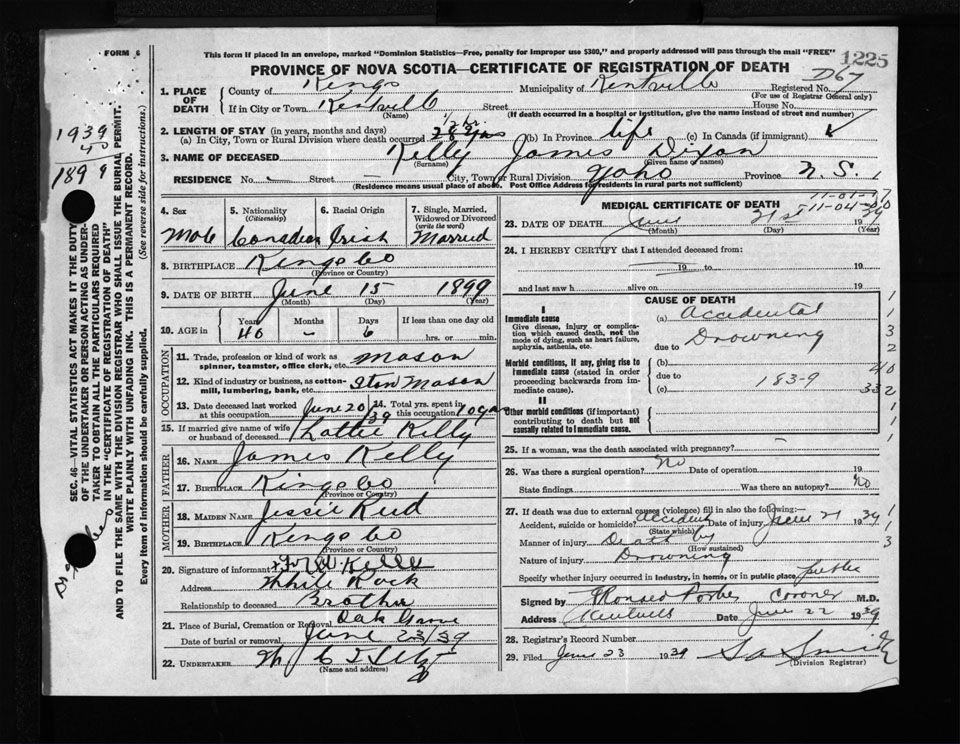 FORM 6
This form if placed in an envelope, marked "Dominion Statistics—Free, penalty for improper use $300," and properly addressed will pass through the mail "FREE"
1225
PROVINCE OF NOVA SCOTIA—CERTIFICATE OF REGISTRATION OF DEATH
1. PLACE OF DEATH County of Kings Municipality of Kentville Registered No. D67
(For use of Registrar General only)
If in City or Town Kentville Street House No.
(Name) (If death occurred in a hospital or institution, give the name instead of street and number)
2. LENGTH OF STAY (in years, months and days)
(a) In City, Town or Rural Division where death occurred 1/2 hr. (b) In Province life (c) In Canada (if immigrant)
3. NAME OF DECEASED Kelly James Dixon
(Surname) (Given name or names)
RESIDENCE No. Street City, Town or Rural Division Province N. S.
(Residence means usual place of abode. Post Office Address for residents in rural parts not sufficient)
1939
40
1899
SEC. 46—VITAL STATISTICS ACT MAKES IT THE DUTY
OF THE UNDERTAKER OR PERSON ACTING AS UNDER-
TAKER TO OBTAIN ALL THE PARTICULARS REQUIRED
IN THE "CERTIFICATE OF REGISTRATION OF DEATH"
AND TO FILE THE SAME WITH THE DIVISION REGISTRAR WHO SHALL ISSUE THE BURIAL PERMIT.
WRITE PLAINLY WITH UNFADING INK. THIS IS A PERMANENT RECORD.
Every item of information should be carefully supplied. (See reverse side for instructions.)
4. Sex 5. Nationality (Citizenship) 6. Racial Origin 7. Single, Married, Widowed or Divorced (write the word)
Male Canadian Irish Married
8. BIRTHPLACE Kings Co
(Province or Country)
9. DATE OF BIRTH June 15 1899
(Month) (Day) (Year)
10. AGE in Years Months Days If less than one day old
6 hrs. or min.
OCCUPATION
11. Trade, profession or kind of work as spinner, teamster, office clerk, etc. Mason
12. Kind of industry or business, as cotton-mill, lumbering, bank, etc. Mason
13. Date deceased last worked at this occupation June 20/39 14. Total yrs. spent in this occupation
15. If married give name of wife or husband of deceased Lottie Kelly
FATHER
16. NAME James Kelly
17. BIRTHPLACE Kings Co
(Province or Country)
MOTHER
18. MAIDEN NAME Jessie Reid
19. BIRTHPLACE Kings Co
(Province or Country)
20. Signature of informant
Address White Rock
Relationship to deceased Brother
21. Place of Burial, Cremation or Removal Oak Grove
Date of burial or removal June 23/39
22. UNDERTAKER
(Name and address)
MEDICAL CERTIFICATE OF DEATH
23. DATE OF DEATH June 21st 1939
(Month) (Day) (Year)
24. I HEREBY CERTIFY that I attended deceased from:
19 to 19
and last saw h alive on 19
CAUSE OF DEATH
I
Immediate cause (a) Accidental
Give disease, injury or complication which caused death, not the mode of dying, such as heart failure, asphyxia, asthenia, etc. due to Drowning
Morbid conditions, if any, giving rise to immediate cause (stated in order proceeding backwards from immediate cause). (b)
due to 183-9
(c)
II
Other morbid conditions (if important) contributing to death but not causally related to immediate cause.
25. If a woman, was the death associated with pregnancy?
26. Was there a surgical operation? No Date of operation 19
State findings Was there an autopsy? No
27. If death was due to external causes (violence) fill in also the following:—
Accident, suicide or homicide? Accident Date of injury June 21 1939
(State which)
Manner of injury Death by
(How sustained)
Nature of injury Drowning
Specify whether injury occurred in industry, in home, or in public place public
Signed by Coroner M.D.
Address Kentville Date June 22 1939
28. Registrar's Record Number
29. Filed June 23 1939 Smith
(Division Registrar)